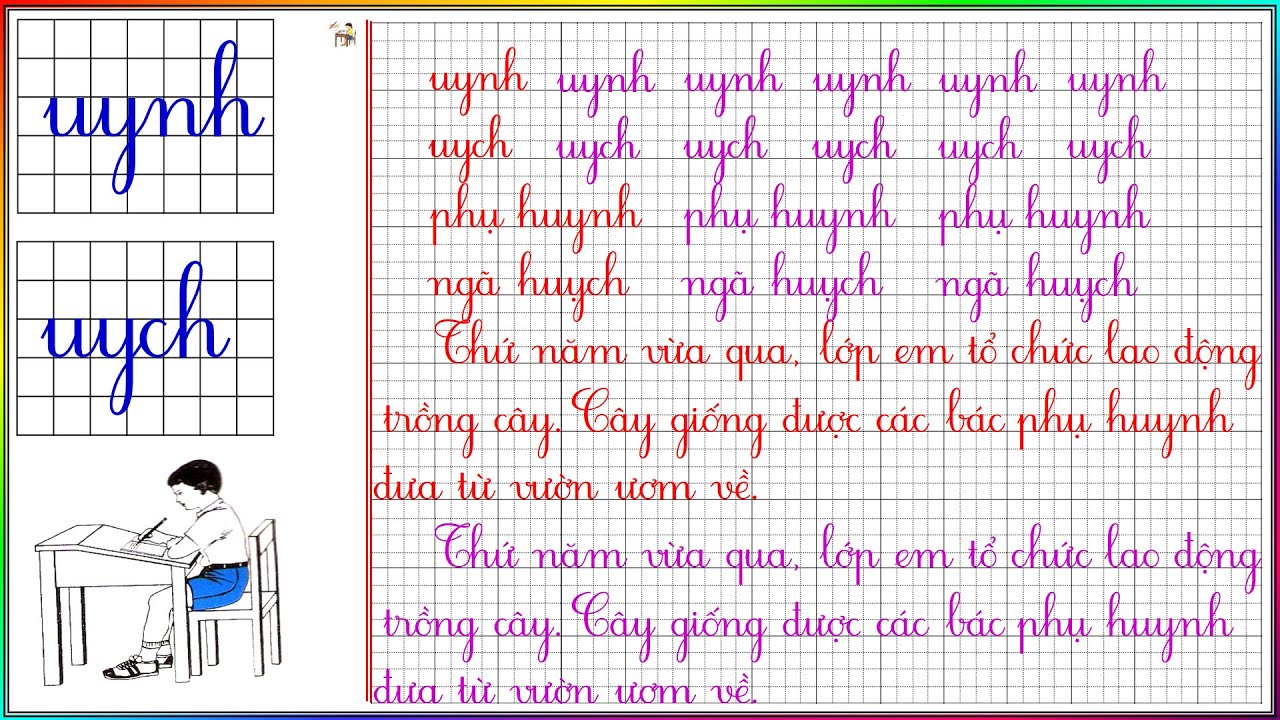 uynh
uych
uynh uynh uynh uynh uynh uynh
uych uych uych uych uych uych
phụ huynh phụ huynh phụ huynh
ngã huỵch ngã huỵch ngã huỵch
Thứ năm vừa qua, lớp em tổ chức lao động
trồng cây. Cây giống được các bác phụ huynh
đưa từ vườn ươm về.
Thứ năm vừa qua, lớp em tổ chức lao động
trồng cây. Cây giống được các bác phụ huynh
đưa từ vườn ươm về.